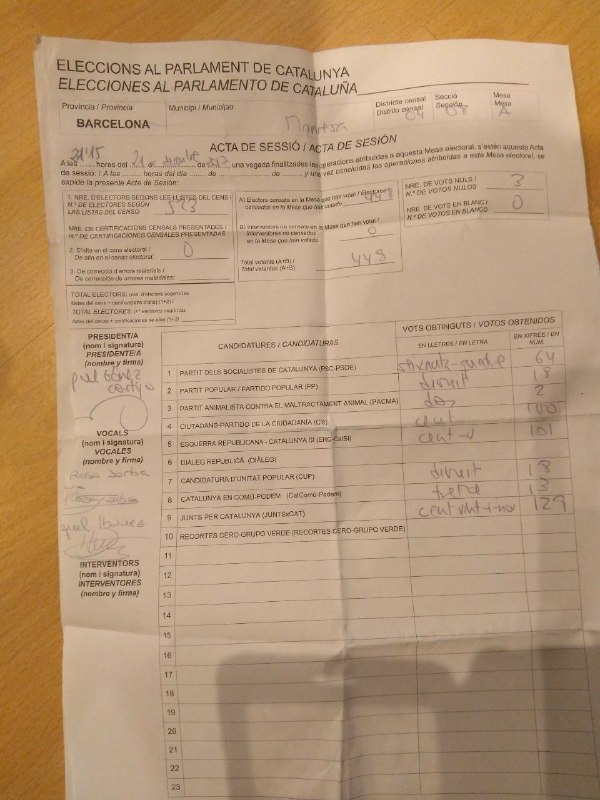 ELECCIONS AL PARLAMENT DE CATALUNYA
ELECCIONES AL PARLAMENTO DE CATALUÑA
Província / Provincia
BARCELONA
Municipi / Municipio
Manresa
Districte censal
Distrito censal
04
Secció
Sección
08
Mesa
Mesa
A
ACTA DE SESSIÓ / ACTA DE SESIÓN
A les 21:15 hores del 21 de de una vegada finalitzades les operacions atribuïdes a aquesta Mesa electoral, s'estén aquesta Acta
de sessió. / A las horas del día de de y una vez concluidas las operaciones atribuidas a esta Mesa electoral, se
expide la presente Acta de Sesión:
1. NRE. D'ELECTORS SEGONS LES LLISTES DEL CENS /
N.º DE ELECTORES SEGÚN
LAS LISTAS DEL CENSO
NRE. DE CERTIFICACIONS CENSALS PRESENTADES /
N.º DE CERTIFICACIONES CENSALES PRESENTADAS
2. D'alta en el cens electoral /
De alta en el censo electoral: 0
3. De correcció d'errors materials /
De corrección de errores materiales:
TOTAL ELECTORS:
TOTAL ELECTORES:
A) Electors censats en la Mesa que han votat / Electores
censados en la Mesa que han votado 448
B) Interventors no censats en la Mesa que han votat /
Interventores no censados
en la Mesa que han votado 0
Total votants (A+B) /
Total votantes (A+B) 448
NRE. DE VOTS NULS /
N.º DE VOTOS NULOS 3
NRE. DE VOTS EN BLANC /
N.º DE VOTOS EN BLANCO 0
PRESIDENT/A
(nom i signatura)
PRESIDENTE/A
(nombre y firma)
VOCALS
(nom i signatura)
VOCALES
(nombre y firma)
Rosa
INTERVENTORS
(nom i signatura)
INTERVENTORES
(nombre y firma)
CANDIDATURES / CANDIDATURAS
VOTS OBTINGUTS / VOTOS OBTENIDOS
EN LLETRES / EN LETRA
EN XIFRES / EN NÚM.
1 PARTIT DELS SOCIALISTES DE CATALUNYA (PSC-PSOE) seixanta-quatre 64
2 PARTIT POPULAR / PARTIDO POPULAR (PP) divuit 18
3 PARTIT ANIMALISTA CONTRA EL MALTRACTMENT ANIMAL (PACMA) dos 2
4 CIUTADANS-PARTIDO DE LA CIUDADANÍA (CS) cent 100
5 ESQUERRA REPUBLICANA - CATALUNYA SÍ (ERC-CatSí) cent-u 101
6 DIÀLEG REPUBLICÀ (DIÀLEG)
7 CANDIDATURA D'UNITAT POPULAR (CUP) divuit 18
8 CATALUNYA EN COMÚ-PODEM (CatComú-Podem) tretze 13
9 JUNTS PER CATALUNYA (JUNTSxCAT) cent vint-i-nou 129
10 RECORTES CERO-GRUPO VERDE (RECORTES CERO-GRUPO VERDE)
11
12
13
14
15
16
17
18
19
20
21
22
23